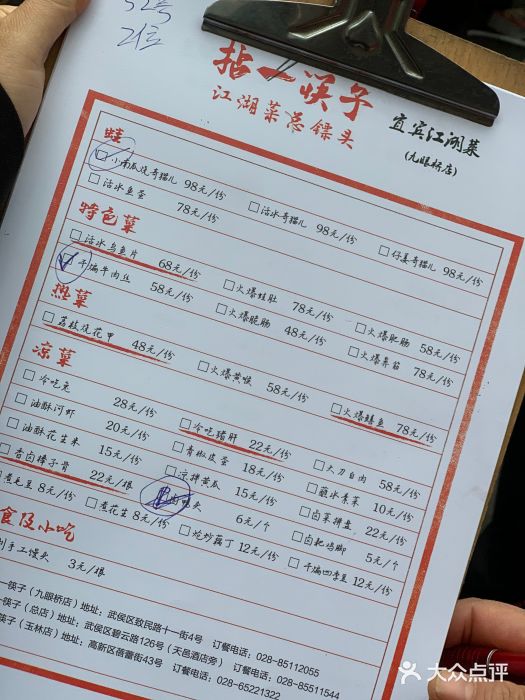 52号
21号
拈一筷子
江湖菜总镖头
宜宾江湖菜
(九眼桥店)
蛙
小南瓜烧哥猫儿 98元/份
活水哥猫儿 98元/份
仔姜哥猫儿 98元/份
活水鱼蛋 78元/份
特色菜
活水乌鱼片 68元/份
火爆蛙肚 78元/份
火爆肥肠 58元/份
干煸牛肉丝 58元/份
火爆脆肠 48元/份
火爆鼻筋 78元/份
热菜
荔枝烧花甲 48元/份
火爆黄喉 58元/份
火爆鳝鱼 78元/份
凉菜
冷吃兔 28元/份
冷吃猪肝 22元/份
大刀白肉 58元/份
油酥河虾 20元/份
青椒皮蛋 18元/份
蘸水素菜 10元/份
油酥花生米 15元/份
凉拌黄瓜 15元/份
卤菜拼盘 22元/份
香卤棒子骨 22元/根
头 6元/个
卤鸡脚 5元/个
煮毛豆 8元/份
煮花生 8元/份
炝炒藕丁 12元/份
干煸四季豆 12元/份
食及小吃
手工馒头 3元/根
一筷子(九眼桥店)地址:武侯区致民路十一街4号 订餐电话:028-85112055
一筷子(总店)地址:武侯区碧云路126号(天邑酒店旁) 订餐电话:028-85511544
筷子(玉林店)地址:高新区蓓蕾街43号 订餐电话:028-65221322
大众点评